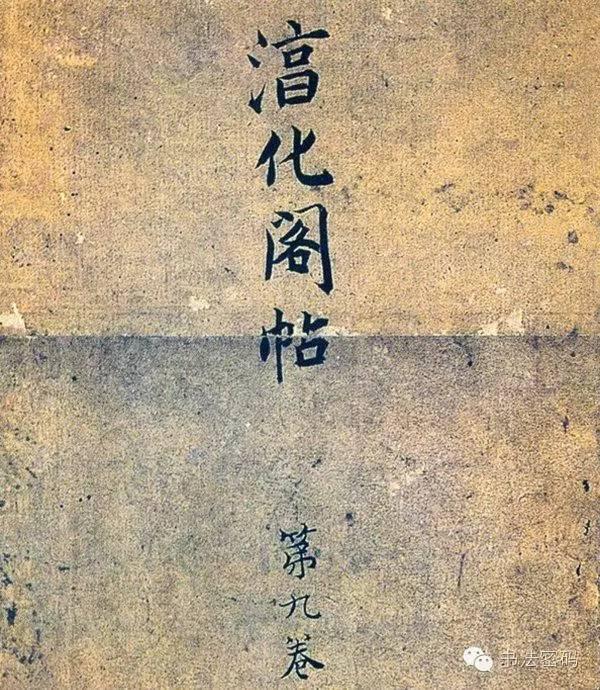 湻化阁帖
第九卷
书法密码